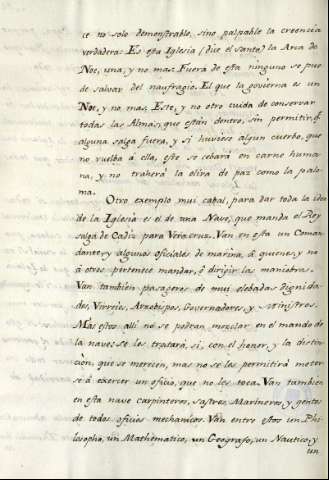 ce no solo demonstrable, sino palpable la creencia
verdadera: Es esta Iglesia (dice el santo) la Arca de
Noe, una, y no mas. Fuera de esta ninguno se pue
de salvar del naufragio. El que la govierna es un
Noe, y no mas. Este, y no otro cuida de conservar
todas las Almas, que estàn dentro, sin permitir, q.
alguna salga fuera, y si huviese algun cuerbo, que
no vuelba à ella, este se cebarà en carne huma
na, y no traherà la oliva de paz como la palo
ma.
Otro exemplo mui cabal, para dar toda la idea
de la Iglesia es el de una Nave, que manda el Rey
salga de Cadiz para Vera cruz. Van en esta un Coman
dante, y algunos oficiales de marina, à quienes, y no
à otros pertenece mandar, ò dirigir las maniobras.
Van tambien pasageros de mui elebadas dignida
des, Virreies, Arzobispos, Governadores, y Ministros.
Mas estos alli no se podràn mezclar en el mando de
la nave: se les tratarà, si, con el honor, y la distin
ciòn, que se merecen, mas no se les permitirà meter
se à exercer un oficio, que no les toca. Van tambien
en esta nave carpinteros, sastres, Marineros, y gentes
de todos oficios mechanicos. Van entre estos un Phi
losopho, un Mathematico, un Geografo, un Nautico, y
un